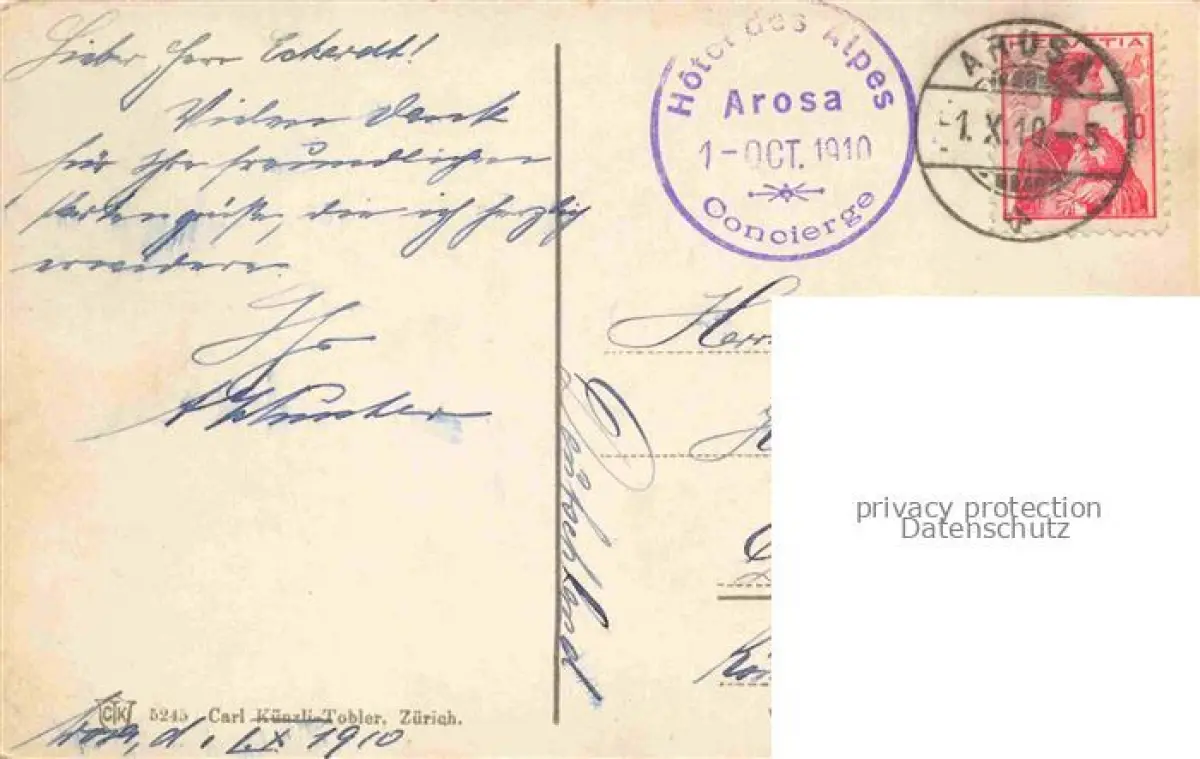 Lieber Herr Eckardt!
Vielen Dank
für Ihre freundlichen
Kartengrüße, die ich herzlich
erwidere.
Ihr
Hôtel des Alpes
Arosa
1-OCT. 1910
Concierge
AROSA
-1.X.10-5
HELVETIA
Herr
Deutschland
privacy protection
Datenschutz
CKT 5245 Carl Künzli-Tobler, Zürich.
Arosa, d. 1. X 1910